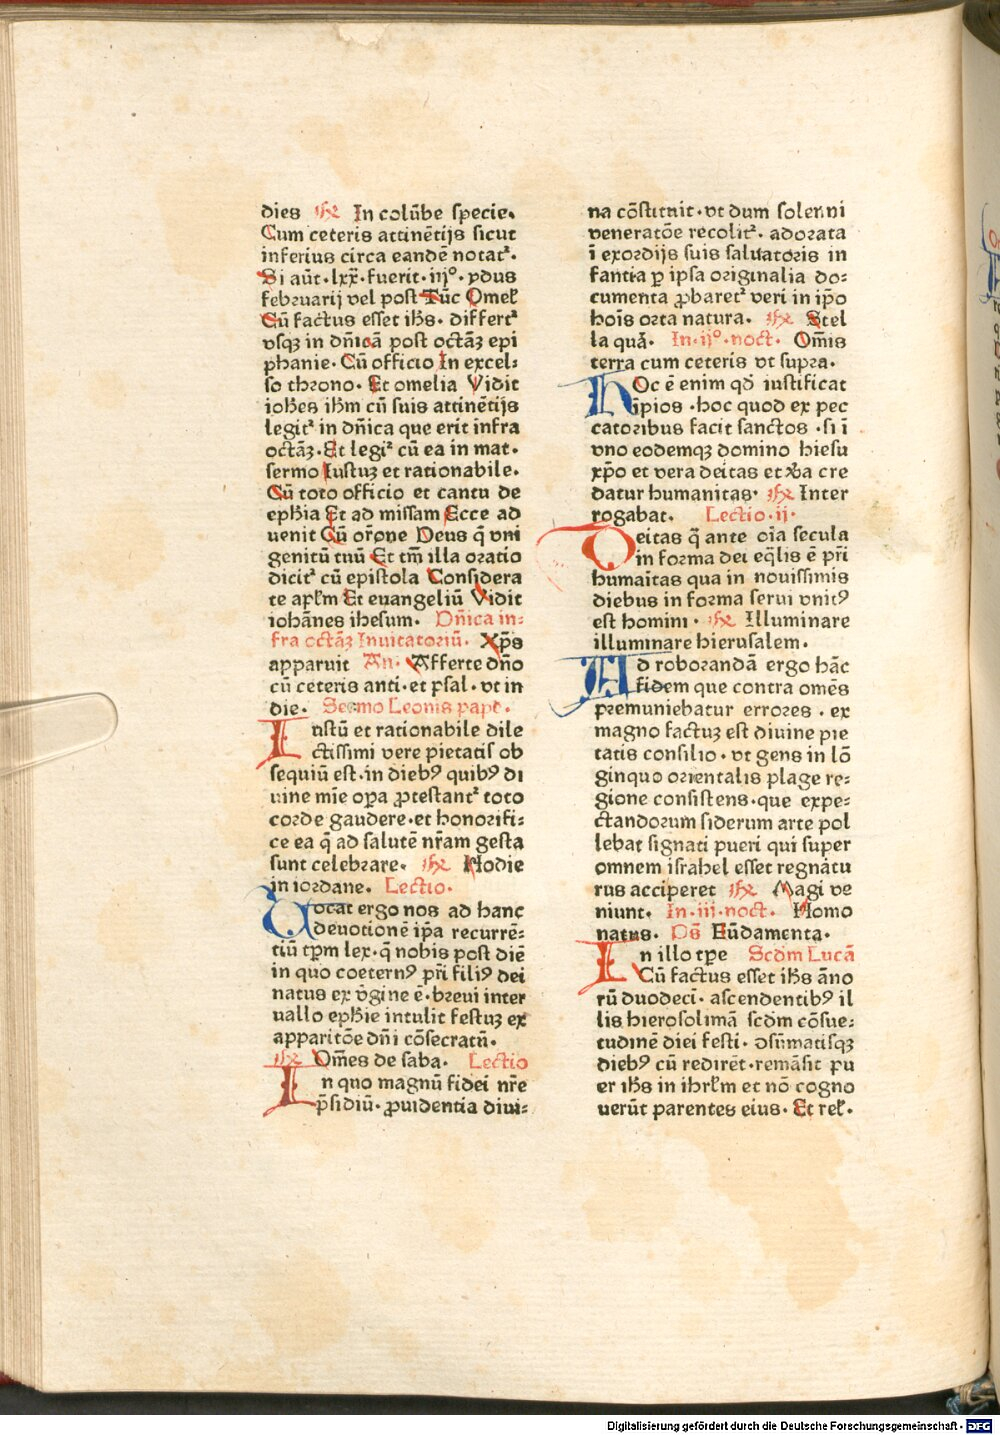 dies ℟ In colūbe specie.
Cum ceteris attinētijs sicut
inferius circa eandē notatᷣ.
Si aūt·lxx̄·fuerit·iijº·ydus
februarij vel post Tūc Omel̄
Cū factus esset ih̄s· differtᷣ
vsqꝫ in dn̄icā post octāꝫ epi
phanie· Cū officio In excel⸗
so throno· Et omelia Vidit
ioh̄es ih̄m cū suis attinētijs
legitᷣ in dn̄ica que erit infra
octāꝫ· Et legiᷣ cū ea in mat·
sermo Iustuꝫ et rationabile·
Cū toto officio et cantu de
eph̄ia Et ad missam Ecce ad
uenit Cū or̄one Deus q̄ vni
genitū tuū Et tm̄ illa oratio
dicitᷣ cū epistola Considera
te apl̄m Et euangeliū Vidit
iohānes ihesum· Dn̄ica in⸗
fra octāꝫ Inuitatoriū· Xp̄s
apparuit An· Afferte dn̄o
cū ceteris anti·et psal·vt in
die· Sermo Leonis pape·
Iustū et rationabile dile
ctissimi vere pietatis ob
sequiū est·in diebꝰ quibꝰ di
uine mīe opa ꝓtestantᷣ toto
corde gaudere·et honorifi⸗
ce ea q̄ ad salutē nr̄am gesta
sunt celebrare· ℟ Hodie
in iordane· Lectio·
Uocat ergo nos ad hanc
deuotionē ip̄a recurrē⸗
tiū tp̄m lex·q̄ nobis post diē
in quo coeternꝰ pr̄i filiꝰ dei
natus ex v̄gine ē·breui inter
uallo eph̄ie intulit festuꝫ ex
apparitōe dn̄i cōsecratū·
℟ Om̄es de saba· Lectio
In quo magnū fidei nr̄e
p̄sidiū·ꝓuidentia diui⸗
na cōstituit·vt dum solenni
veneratōe recolitᷣ· adorata
ī exordijs suis saluatoris in
fantia ꝑ ipsa originalia do⸗
cumenta ꝓbaretᷣ veri in ip̄o
hoīs orta natura· ℟ Stel
la quā· In·ijº·noct· Om̄is
terra cum ceteris vt supra·
Hoc ē enim qd̄ iustificat
īpios·hoc quod ex pec
catoribus facit sanctos·si ī
vno eodemqꝫ domino hiesu
xp̄o et vera deitas et v̄a cre
datur humanitas· ℟ Inter
rogabat· Lectio·ij·
Deitas q̄ ante oīa secula
in forma dei eq̄lis ē pr̄i
humaītas qua in nouissimis
diebus in forma serui vnitꝰ
est homini· ℟ Illuminare
illuminare hierusalem·
Ad roborandā ergo hāc
fidem que contra omēs
premuniebatur errores·ex
magno factuꝫ est diuine pie
tatis consilio·vt gens in lō
ginquo orientalis plage re⸗
gione consistens·que expe⸗
ctandorum siderum arte pol
lebat signati pueri qui super
omnem israhel esset regnatu
rus acciperet ℟ Magi ve
niunt· In·iij·noct· Homo
natus· Ps̄ Fūdamenta·
In illo tp̄e Scdm Lucā
Cū factus esset ih̄s āno
rū duodecī·ascendentibꝰ il
lis hierosolimā scdm cōsue⸗
tudinē diei festi· ꝯsūmatisqꝫ
diebꝰ cū redirēt·remāsit pu
er ih̄s in ihrl̄m et nō cogno
uerūt parentes eius· Et rel̄·
Digitalisierung gefördert durch die Deutsche Forschungsgemeinschaft - DFG